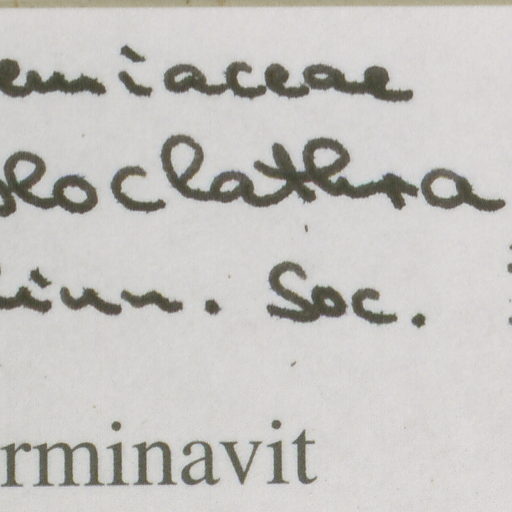 emiaceae
oloclathra
Linn. Soc.
rminavit